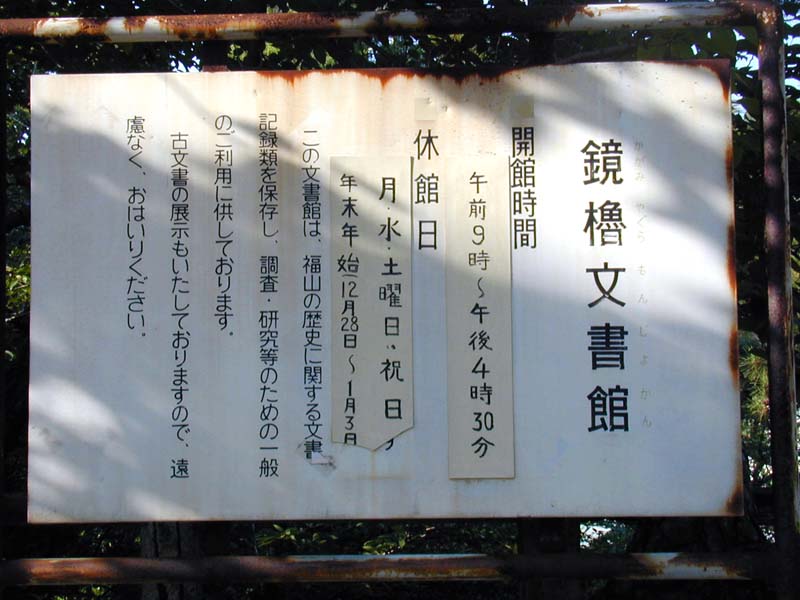 かがみ やぐら もんじょかん
鏡櫓文書館
開館時間
午前9時～午後4時30分
休館日
月・水・土曜日・祝日
年末年始(12月28日～1月3日
この文書館は、福山の歴史に関する文書
記録類を保存し、調査・研究等のための一般
のご利用に供しております。
古文書の展示もいたしておりますので、遠
慮なく、おはいりください。